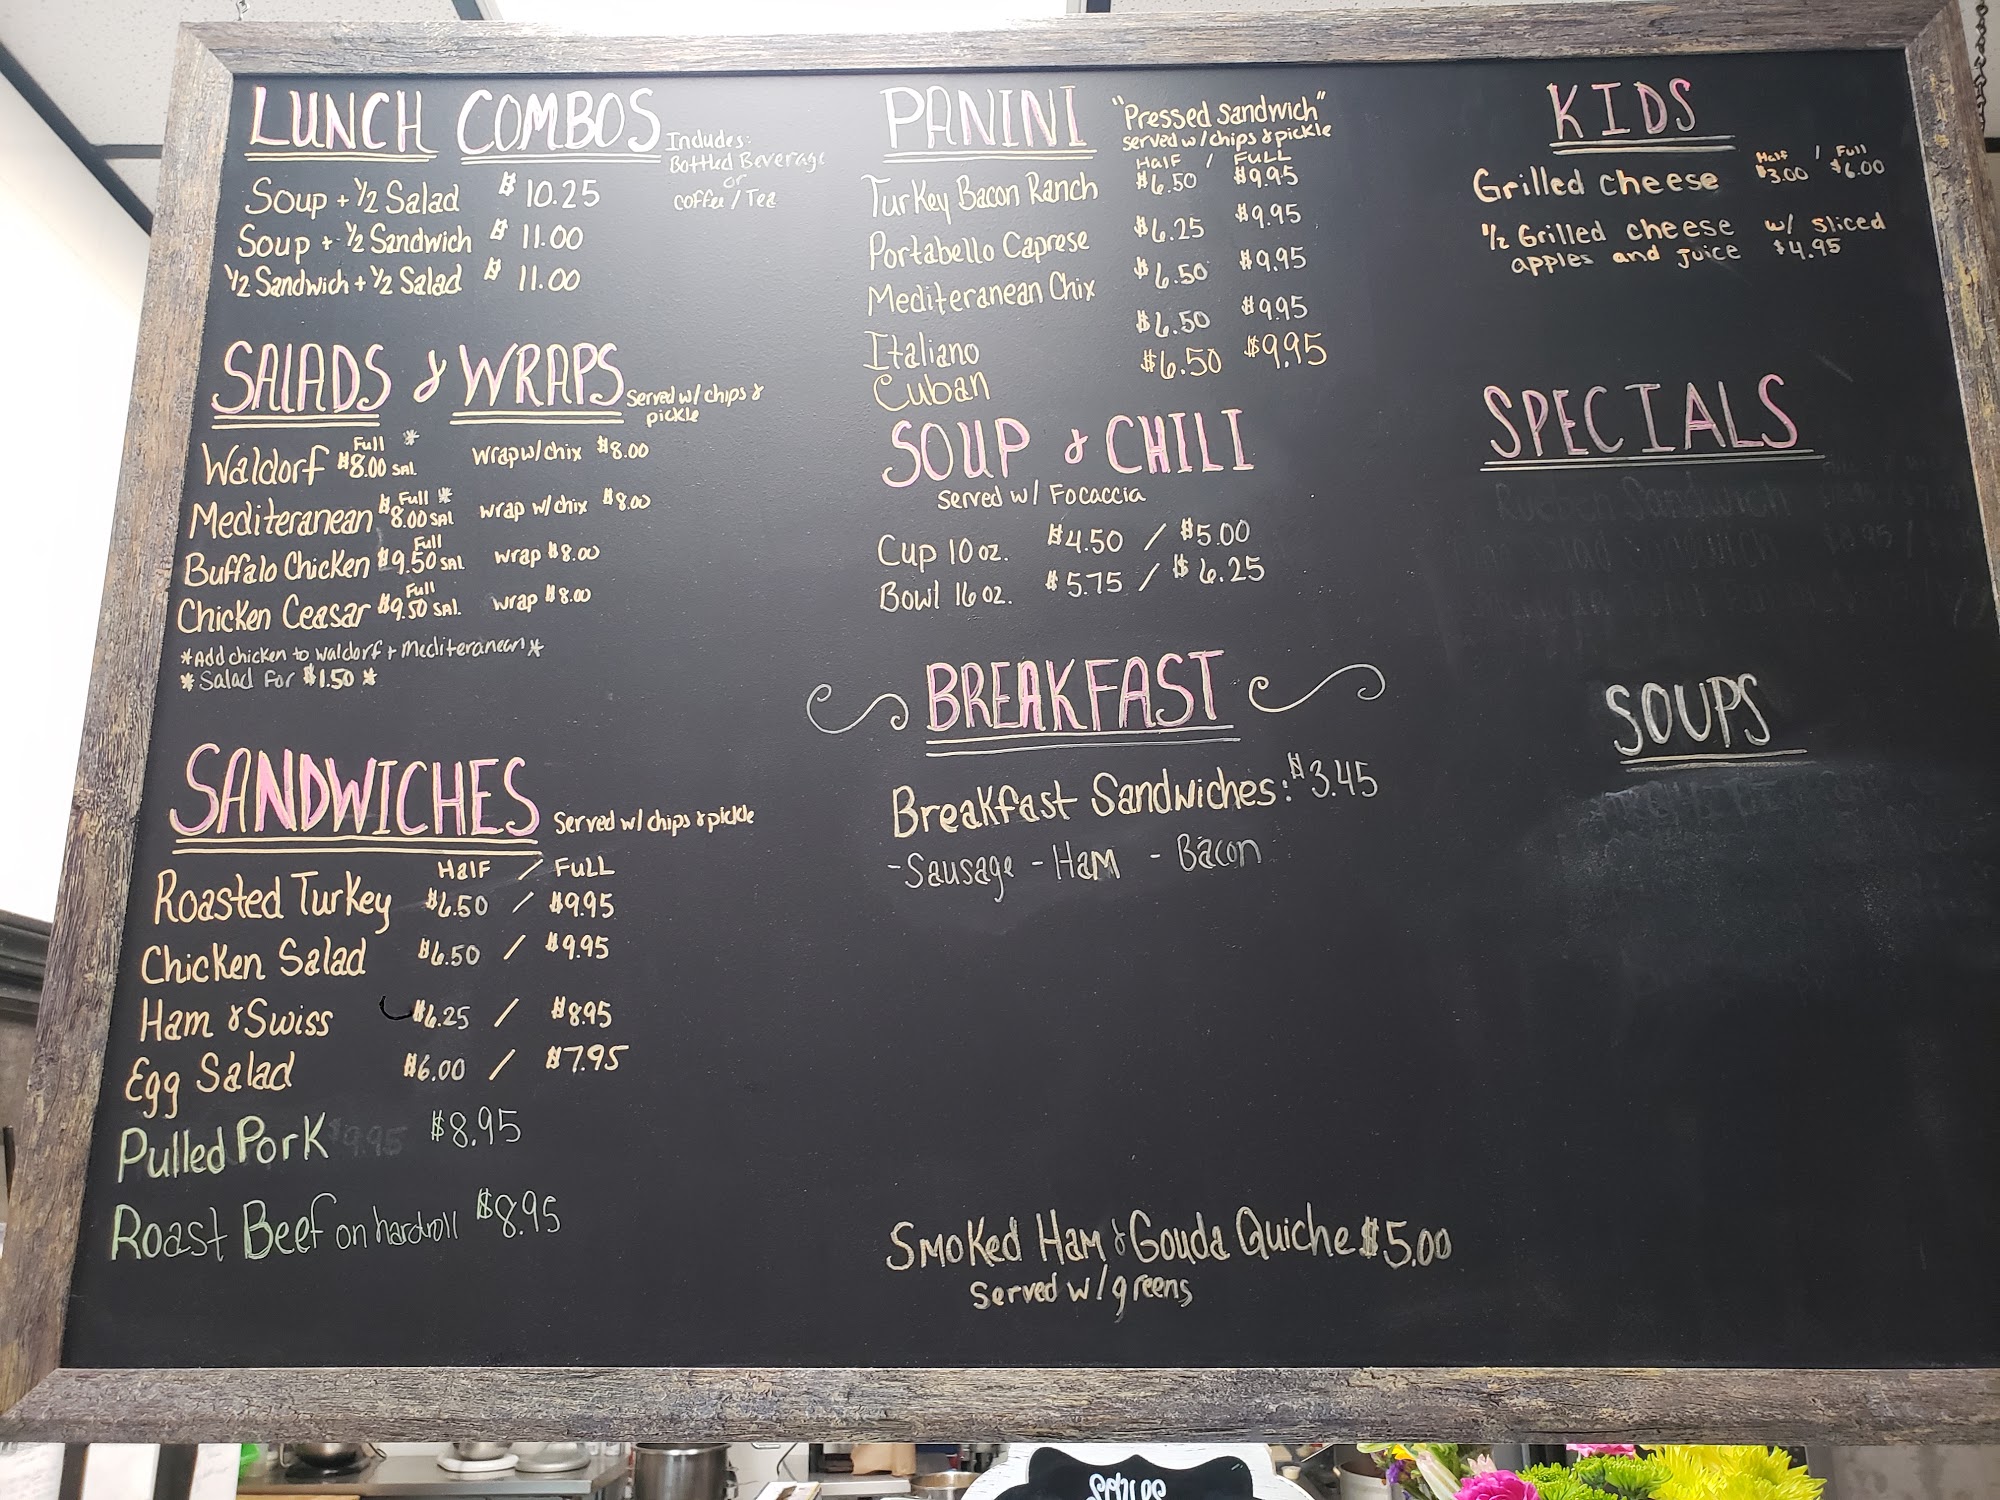 LUNCH COMBOS
Includes:
Bottled Beverage
or
coffee / Tea
Soup + 1/2 Salad $10.25
Soup + 1/2 Sandwich $11.00
1/2 Sandwich + 1/2 Salad $11.00
SALADS & WRAPS
Served w/ chips &
pickle
Waldorf Full $8.00 SAL. * wrap w/ chix $8.00
Mediteranean Full $8.00 SAL * wrap w/ chix $8.00
Buffalo Chicken Full $9.50 SAL wrap $8.00
Chicken Ceasar Full $9.50 SAL. wrap $8.00
*Add chicken to waldorf + Mediteranean*
* Salad for $1.50 *
SANDWICHES Served w/ chips & pickle
Half / Full
Roasted Turkey $6.50 / $9.95
Chicken Salad $6.50 / $9.95
Ham & Swiss $6.25 / $8.95
Egg Salad $6.00 / $7.95
Pulled Pork $9.95 $8.95
Roast Beef on hardroll $8.95
PANINI "Pressed Sandwich"
served w/ chips & pickle
Half / Full
Turkey Bacon Ranch $6.50 $9.95
Portabello Caprese $6.25 $9.95
Mediteranean Chix $6.50 $9.95
Italiano $6.50 $9.95
Cuban $6.50 $9.95
SOUP & CHILI
Served w/ Focaccia
Cup 10 oz. $4.50 / $5.00
Bowl 16 oz. $5.75 / $6.25
BREAKFAST
Breakfast Sandwiches: $3.45
- Sausage - Ham - Bacon
Smoked Ham & Gouda Quiche $5.00
Served w/ greens
KIDS
Half / Full
Grilled cheese $3.00 $6.00
1/2 Grilled cheese w/ sliced
apples and juice $4.95
SPECIALS
Rueben Sandwich
SOUPS